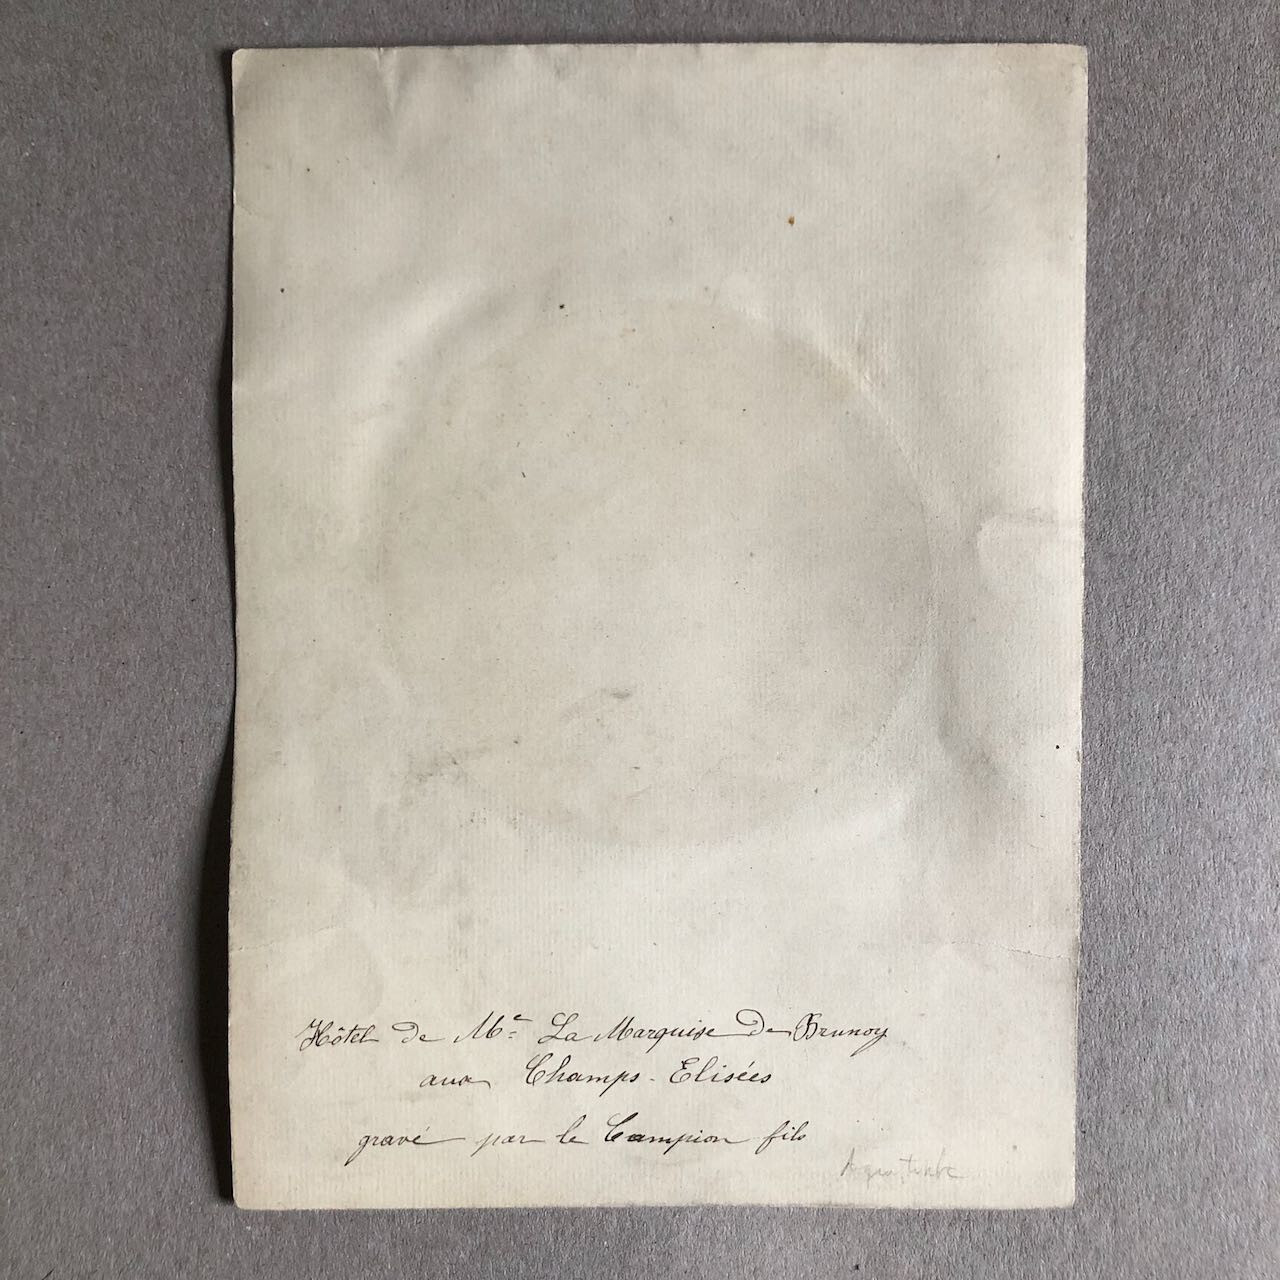 Hôtel de Me La Marquise de Brunoy
aux Champs-Elisées
gravé par le Campion fils
Aquatinte